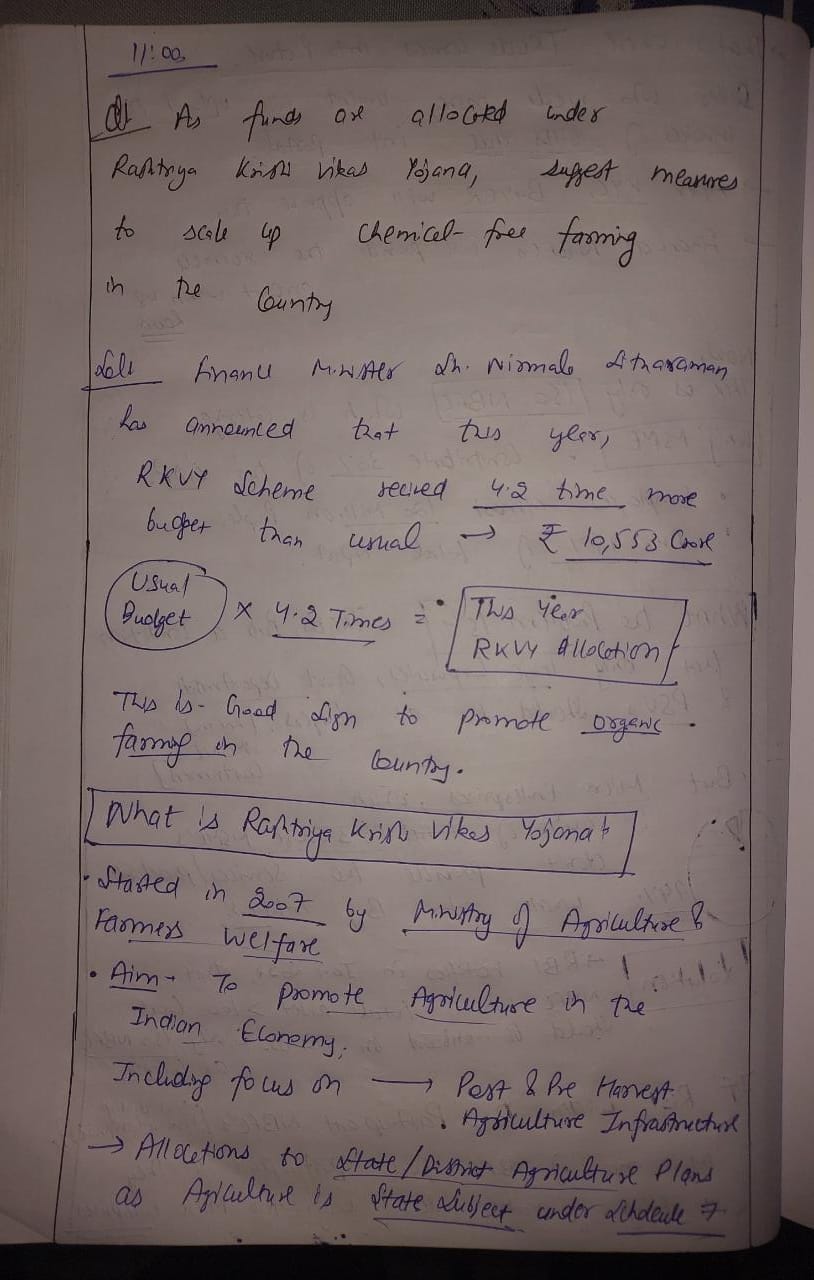 11:00
Q1 As funds are allocated under
Rashtriya Krishi Vikas Yojana, suggest measures
to scale up chemical-free farming
in the Country
Sol: Finance Minister Sh. Nirmala Sitharaman
has announced that this year,
RKVY Scheme recived 4.2 time more
budget than usual → ₹ 10,553 Crore
Usual Budget × 4.2 Times = This Year RKVY Allocation
This is Good sign to promote organic
farming in the Country.
What is Rashtriya Krishi Vikas Yojana?
• Started in 2007 by Ministry of Agriculture &
Farmers Welfare
• Aim - To promote Agriculture in the
Indian Economy.
Including focus on → Post & Pre Harvest
• Agriculture Infrastructure
→ Allocations to State/District Agriculture Plans
as Agriculture is State Subject under Schdeule 7